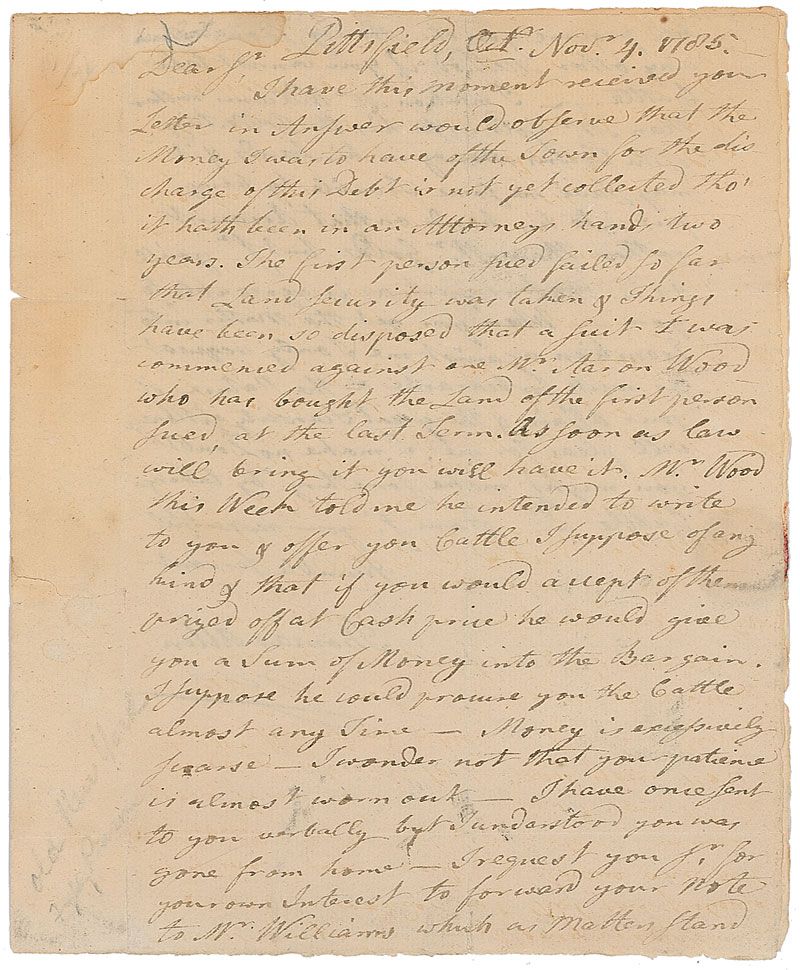 Pittsfield, Nov.r 4. 1785.
Dear Sr
I have this moment received your
Letter in Answer would observe that the
Money I was to have of the Town for the dis
charge of this Debt is not yet collected tho'
it hath been in an Attorneys hands two
years. The first person sued failed so far
that Land security was taken & Things
have been so disposed that a suit I was
commenced against one Mr. Aaron Wood
who has bought the Land of the first person
sued, at the last Term. As soon as law
will bring it you will have it. Mr. Wood
this Week told me he intended to write
to you & offer you Cattle I suppose of any
kind & that if you would accept of them
prized off at Cash price he would give
you a Sum of Money into the Bargain.
I suppose he could procure you the Cattle
almost any Time — Money is excessively
scarse — I wonder not that you patience
is almost worn out — I have once sent
to you verbally but I understood you was
gone from home — I request you Sr. for
your own Interest to forward your Note
to Mr. Williams which as Matters stand